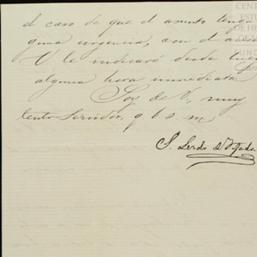 el caso de que el asunto tenga
guna urgencia, con el
V. le indicaré desde luego
alguna hora inmediata
Soy de V. muy
tento Servidor, q b s m
S. Lerdo de Tejada
CEN